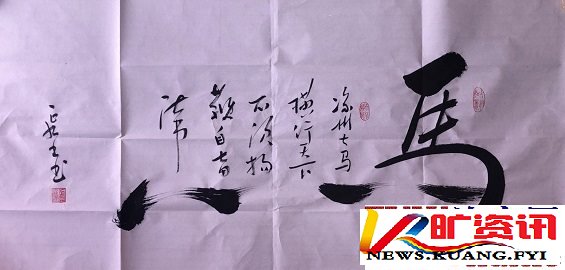 馬
凉州大马
横行天下
不须扬
鞭自奋
蹄
旷资讯
NEWS.KUANG.FYI